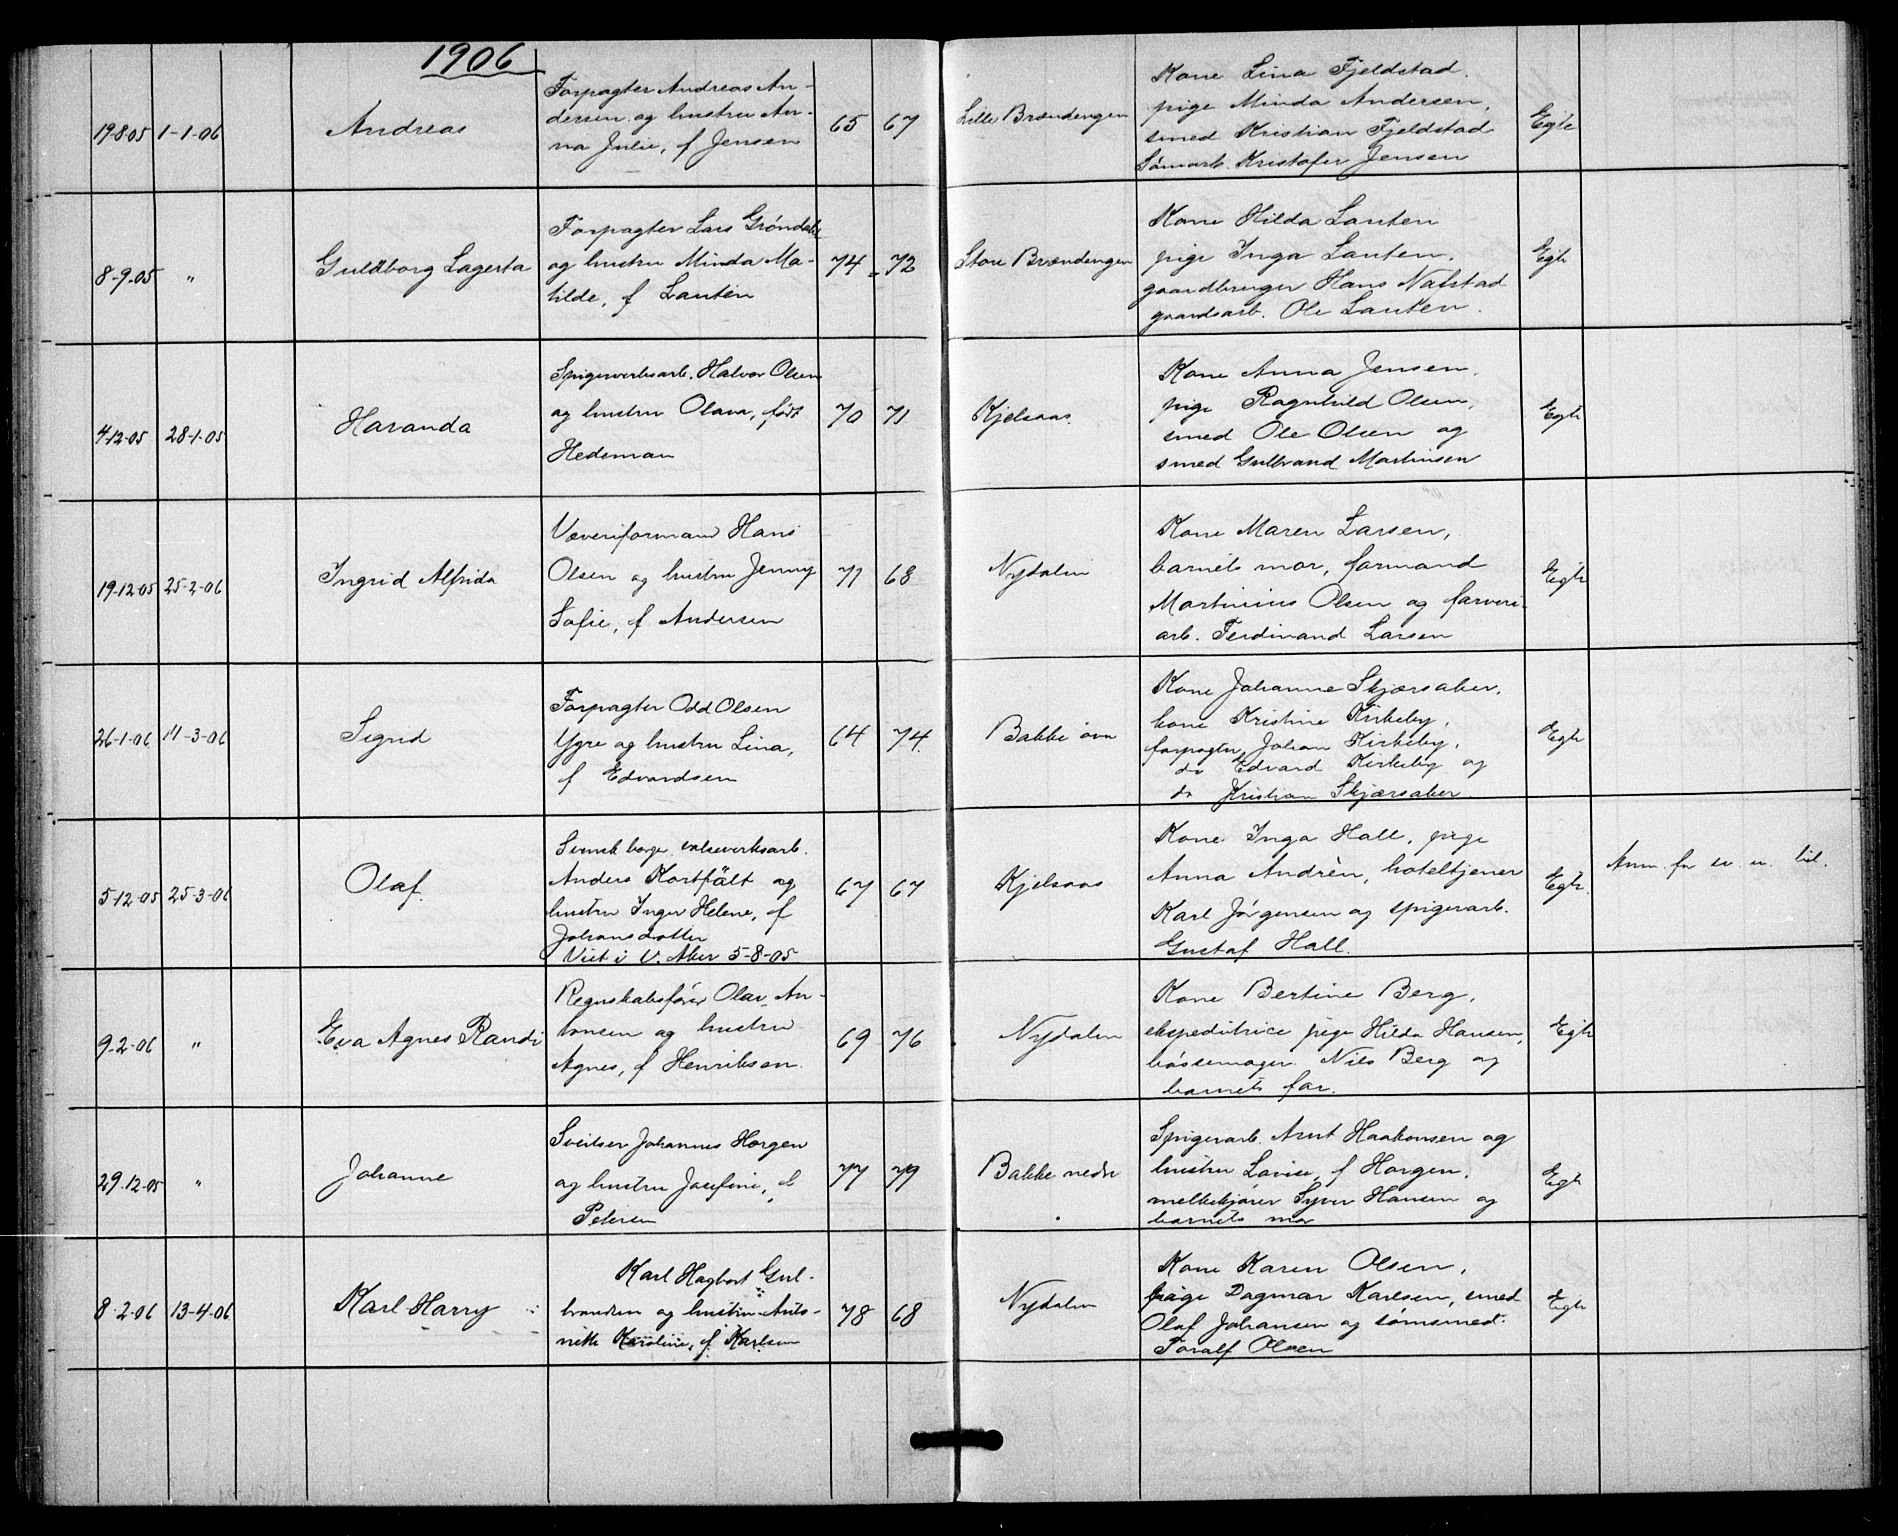 1906
19-8-05 1-1-06 Andreas
Forpagter Andreas An-
dersen og hustru An-
na Julie, f Jensen
65 67
Lille Brændengen
Kone Lina Fjeldstad,
pige Minda Andersen,
smed Kristian Fjeldstad
Sømarb. Kristofer Jensen
Egte
8-9-05 " Guldborg Lagerta
Forpagter Lars Grøndahl
og hustru Minda Ma-
tilde, f Lauten
74 72
Store Brændengen
Kone Hilda Lauten
pige Inga Lauten,
gaardbruger Hans Natstad
gaardsarb. Ole Lauten.
Egte
4-12-05 28-1-05 Haranda
Spigerverksarb. Halvor Olsen
og hustru Olava, født
Hedeman
70 71
Kjelsaas.
Kone Anna Jensen,
pige Ragnhild Olsen,
smed Ole Olsen og
smed Gulbrand Martinsen
Egte
19-12-05 25-2-06 Ingrid Alfrida
Væveriformand Hans
Olsen og hustru Jenny
Sofie, f Andersen
71 68
Nydalen
Kone Maren Larsen,
barnets mor, formand
Martinius Olsen og farveri-
arb. Ferdinand Larsen
Egte
26-1-06 11-3-06 Sigrid
Forpagter Odd Olsen
Ygre og hustru Lina,
f Edvardsen
64 74.
Bakke øvre
Kone Johanne Skjærsaker,
kone Kristine Kirkeby,
forpagter Johan Kirkeby,
do Edvard Kirkeby og
do Kristian Skjærsaker.
Egte
5-12-05 25-3-06 Olaf
Svensk borger valseverksarb.
Anders Kortfält og
hustru Inger Helene, f
Johansdotter
Viet i V. Aker 5-8-05
67 67
Kjelsaas
Kone Inga Hall, pige
Anna Andrèn, hoteltjener
Karl Jörgensen og spigerarb.
Gustaf Hall.
Egte.
Anm. fr
9-2-06 " Eva Agnes Randi
Regnskabsfører Olav An-
tonsen og hustru
Agnes, f Henriksen.
69 76
Nydalen
Kone Bertine Berg,
ekspeditrice pige Hilda Hansen,
bøssemager Nils Berg og
barnets far.
Egte
29-12-05 " Johanne
Sveitser Johannes Horgen
og hustru Josefine, f
Petersen
77 79
Bakke nedre
Spigerarb. Arnt Haakonsen og
hustru Lovise, f Horgen,
melkekjører Syver Hansen og
barnets mor
Egte
8-2-06 13-4-06 Karl Harry
Karl Hagbart Gul-
brandsen og hustru Anto-
nette Karoline, f Karlsen
78 68
Nydalen
Kone Karen Olsen,
pige Dagmar Karlsen, smed
Olaf Johansen og sømsmed
Toralf Olsen
Egte